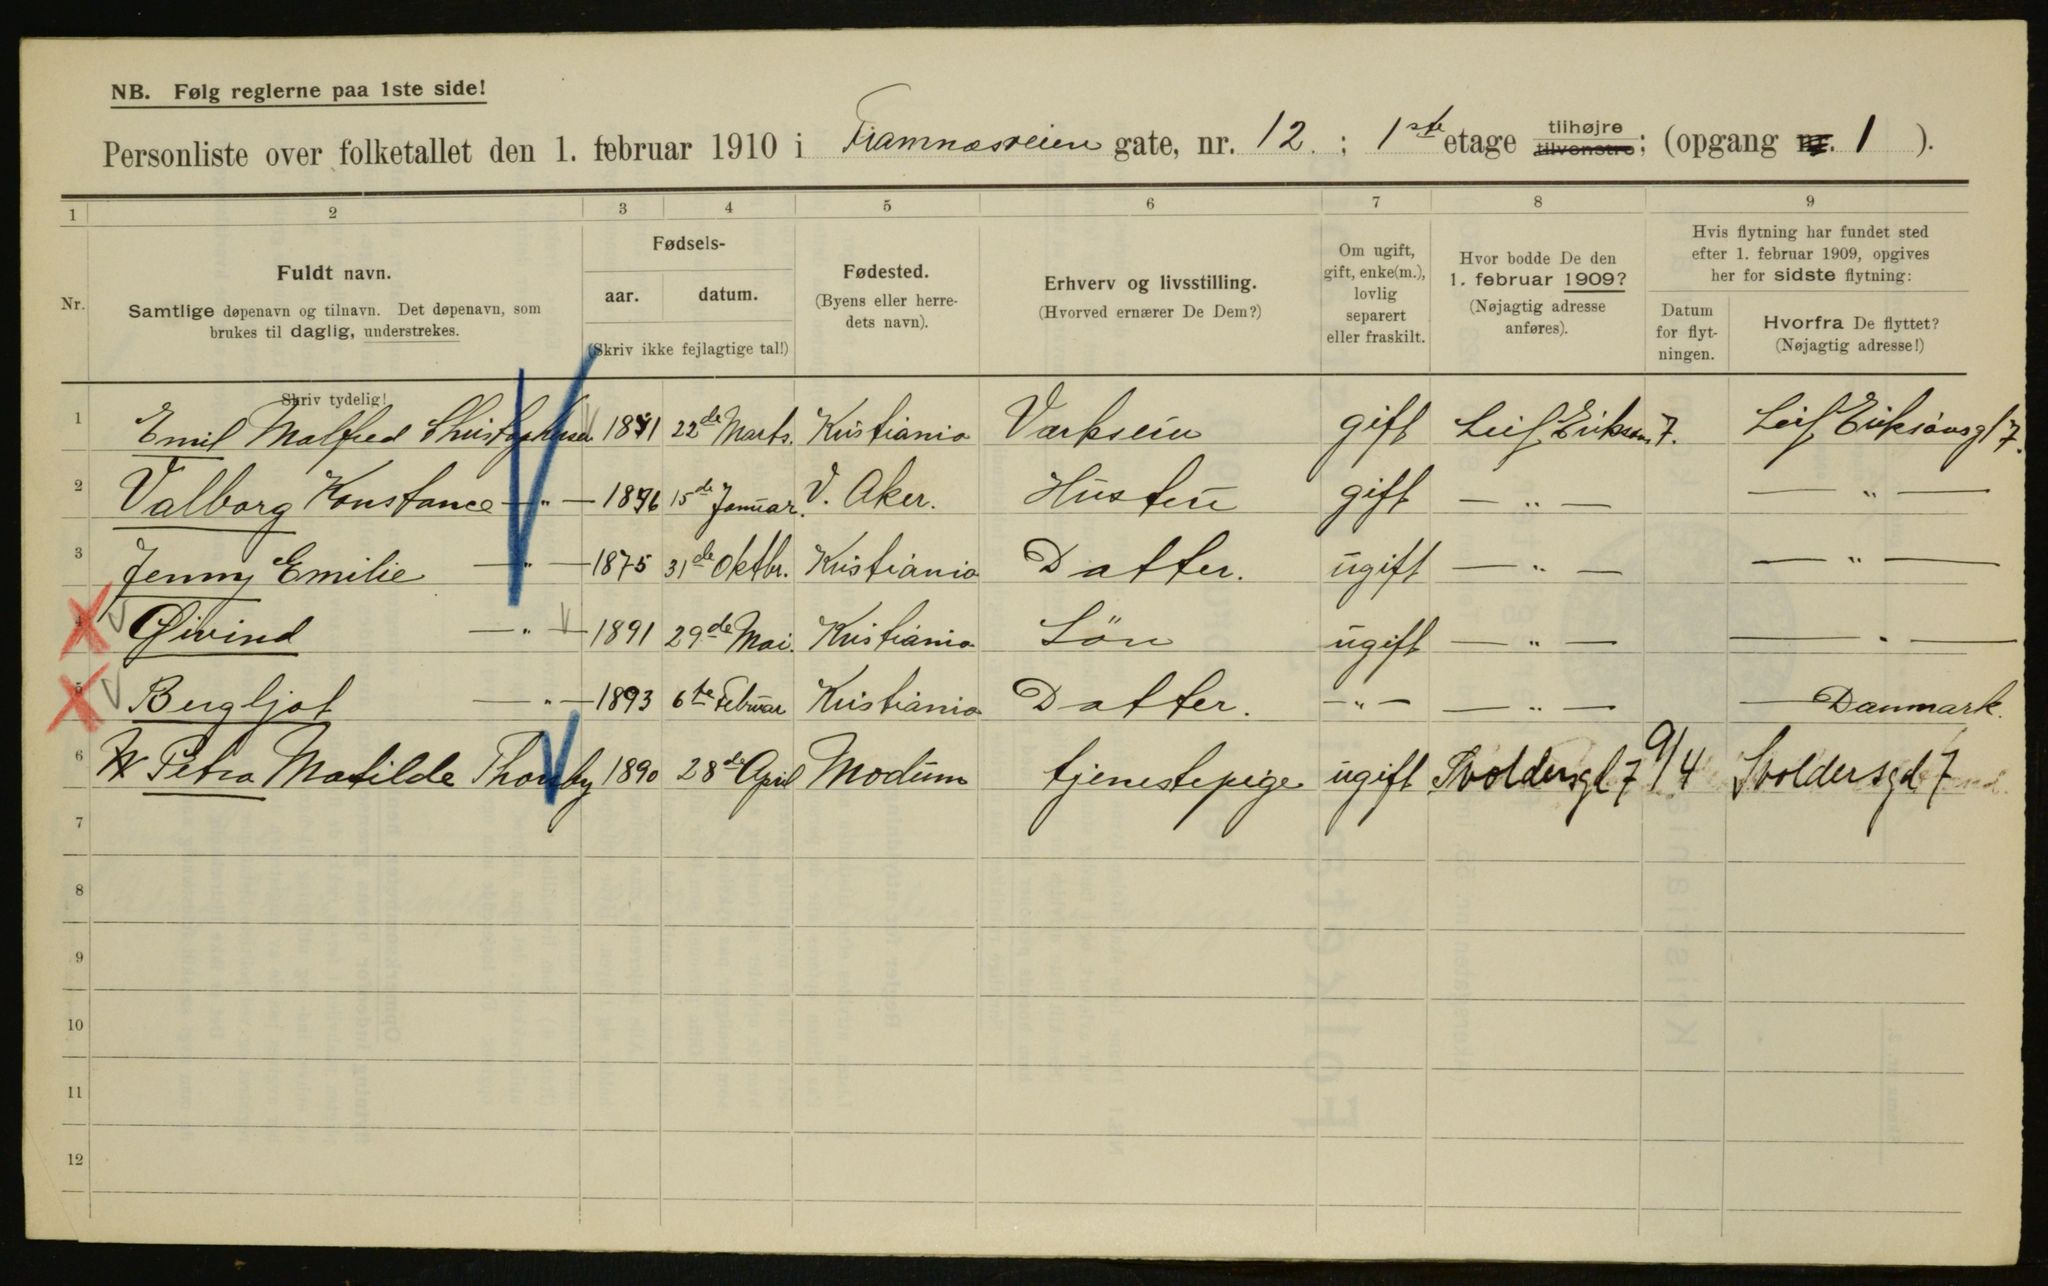 NB. Følg reglerne paa 1ste side!
Personliste over folketallet den 1. februar 1910 i Framnæsveien gate, nr. 12. ; 1ste etage tilhøjre tilvenstre; (opgang nr. 1 ).
1 2 3 4 5 6 7 8 9
Nr.
Fuldt navn.
Samtlige døpenavn og tilnavn. Det døpenavn, som
brukes til daglig, understrekes.
Skriv tydelig!
Fødsels-
aar. datum.
(Skriv ikke fejlagtige tal!)
Fødested.
(Byens eller herre-
dets navn).
Erhverv og livsstilling.
(Hvorved ernærer De Dem?)
Om ugift,
gift, enke(m.),
lovlig
separert
eller fraskilt.
Hvor bodde De den
1. februar 1909?
(Nøjagtig adresse
anføres).
Hvis flytning har fundet sted
efter 1. februar 1909, opgives
her for sidste flytning:
Datum
for flyt-
ningen.
Hvorfra De flyttet?
(Nøjagtig adresse!)
1 Emil Malfred Christophersen 22de Marts. Kristiania Værkseier gift Leif Eriksøns 7. Leif Eriksønsgt 7.
2 Valborg Konstance — " — 15de Januar. V. Aker. Hustru gift — " — — " —
3 Jenny Emilie — " — 1875 31de Oktbr. Kristiania Datter. ugift — " — — " —
4 Øivind — " — 1891 29de Mai. Kristiania Sön ugift — " — — " —
5 Bergljot — " — 1893 6te Februar Kristiania Datter. — " — — " — — Danmark.
6 Petra Matilde Thorsby 1890 28de April Modum tjenestepige ugift Svoldersgt 7 9/4 Svoldersgd 7
7
8
9
10
11
12